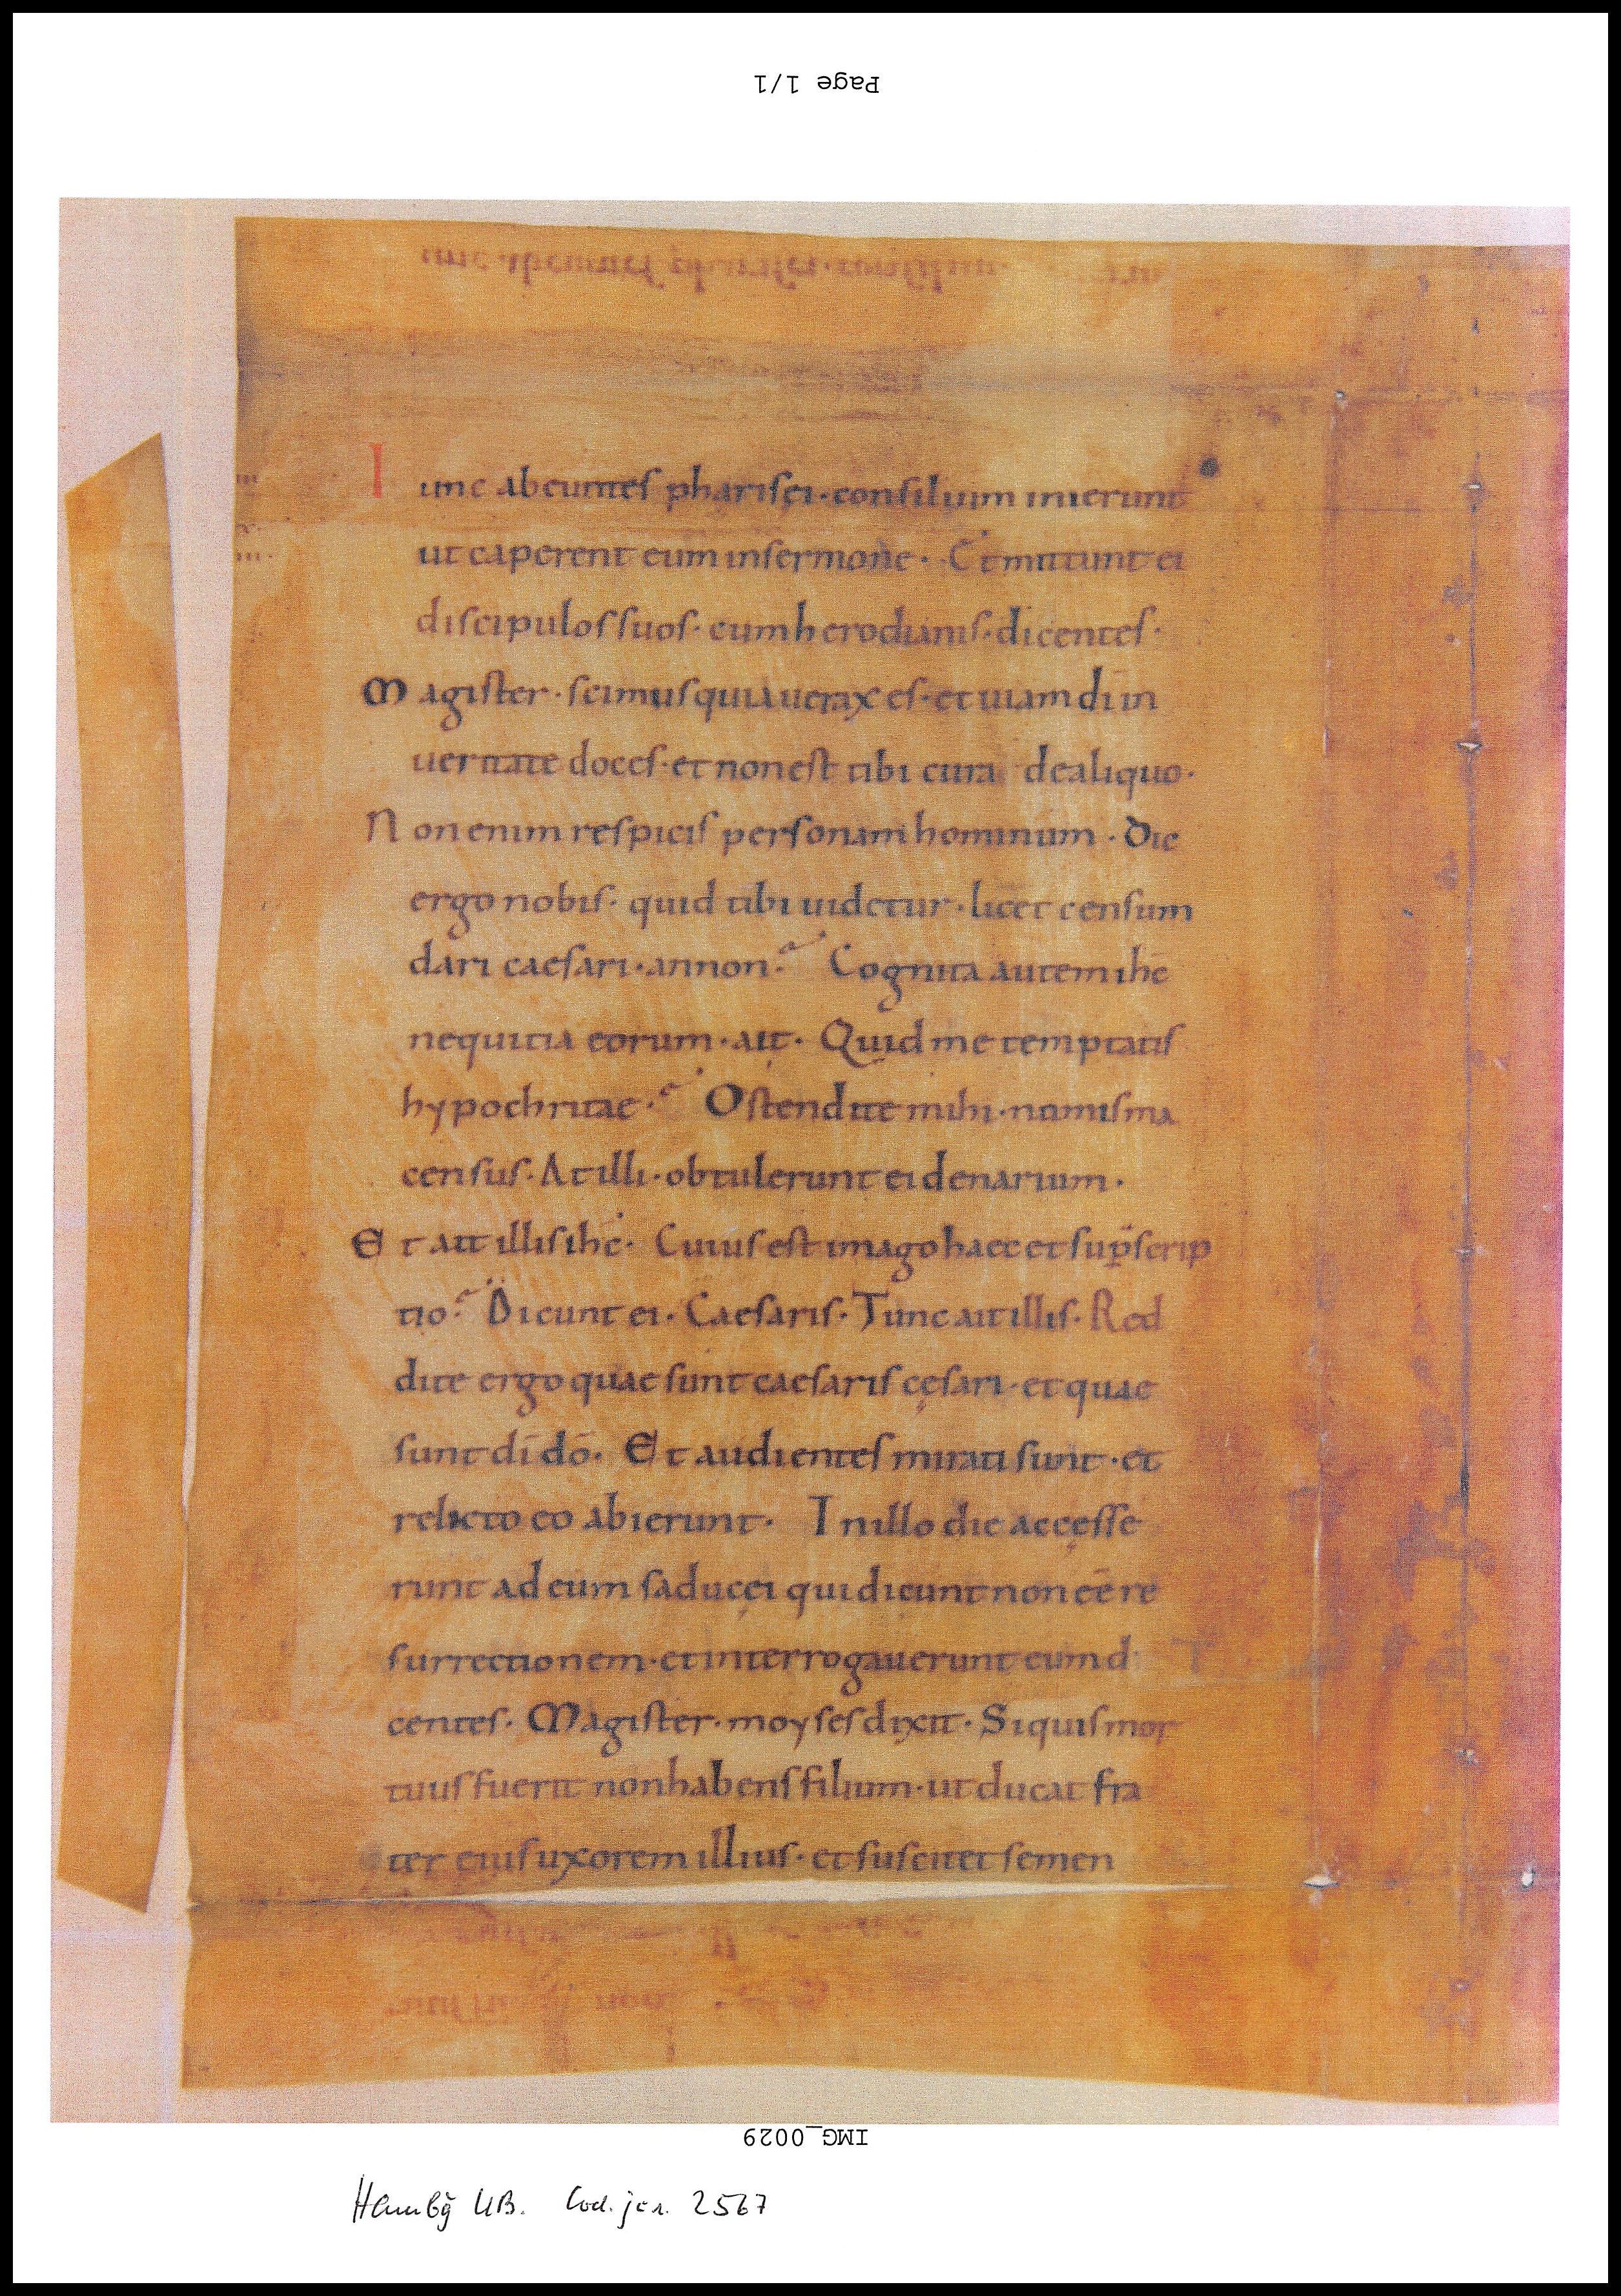 Page 1/1
Tunc abeuntes pharisęi · consilium inierunt
ut caperent eum insermone · Et mittunt ei
discipulos suos · cum herodianis · dicentes ·
Magister · scimus quia uerax es · et uiam dī in
ueritate doces · et non est tibi cura de aliquo ·
Non enim respicis personam hominum · Dic
ergo nobis · quid tibi uidetur · licet censum
dari caesari · annon? Cognita autem ihc̄
nequitia eorum · ait · Quid me temptatis
hypochritae? Ostendite mihi · numisma
census · At illi · obtulerunt ei denarium ·
Et ait illis ihc̄ · Cuius est imago haec et sup̄scrip
tio? Dicunt ei · Caesaris · Tunc ait illis · Red
dite ergo quae sunt caesaris cęsari · et quae
sunt dī dō · Et audientes mirati sunt · et
relicto eo abierunt · In illo die accęsse
runt ad eum saducęi qui dicunt non eē re
surrectionem · et interrogauerunt eum d
centes · Magister · moyses dixit · Si quis mor
tuus fuerit non habens filium · ut ducat fra
ter eius uxorem illius · et suscitet semen
IMG_0029
Hambg UB. Cod. jur. 2567